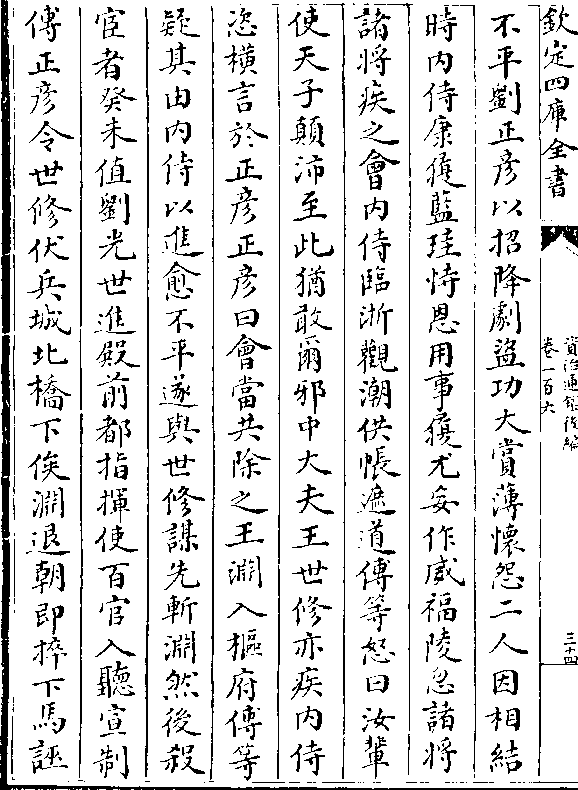 欽定四庫全書
資治通鑑後編
卷一百六
三十四
不平劉正彥以招降劇盜功大賞薄懷怨二人因相結
時內侍康履藍珪恃恩用事履尤妄作威福陵忽諸將
諸將疾之會內侍臨浙觀潮供帳遮道傅等怒曰汝輩
使天子顛沛至此猶敢爾邪中大夫王世修亦疾內侍
恣橫言於正彥正彥曰會當共除之王淵入樞府傅等
疑其由內侍以進愈不平遂與世修謀先斬淵然後殺
宦者癸未值劉光世進殿前都指揮使百官入聽宣制
傅正彥令世修伏兵城北橋下俟淵退朝即捽下馬誣